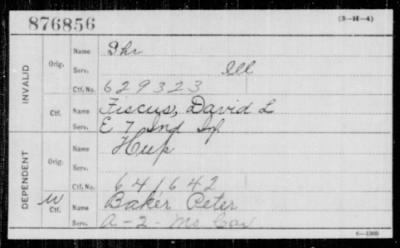 876856
(3—H—4)
INVALID
Orig.
Name
Serv.
Ill
Ctf. No. 629323
Ctf.
Name Fiscus, David L
Serv. E 7 Ind Inf
DEPENDENT
Orig.
Name
Serv.
Ctf. No. 641642
W
Ctf.
Name Baker Peter
Serv. A-2- Mo Cav